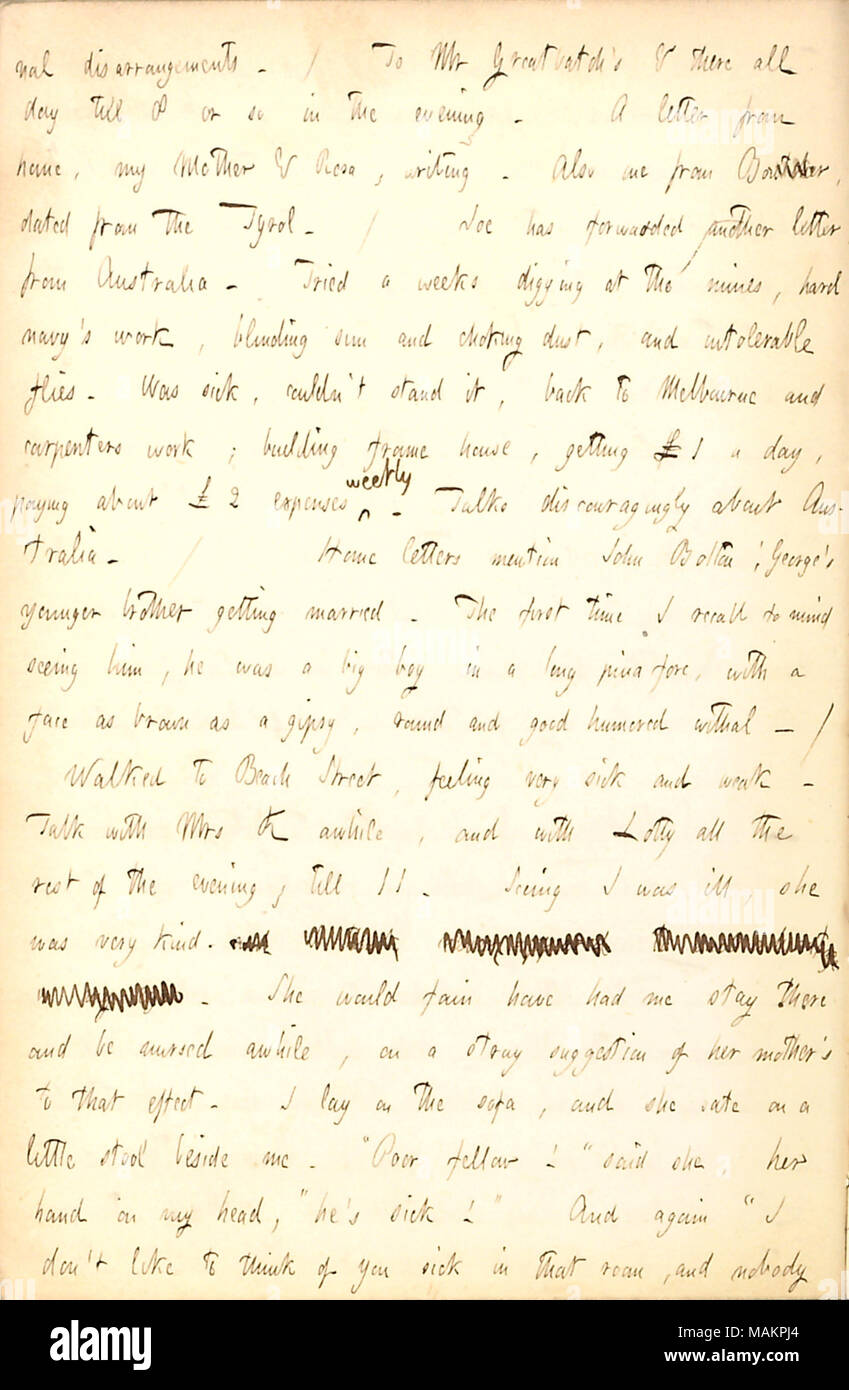 nal disarrangements - / To Mr Greatbatch's & there all
day till 8 or so in the evening - A letter from
home, my Mother & Rosa, writing - Also one from
dated from the Tyrol - / Joe has forwarded another letter
from Australia - Tried a weeks digging at the mines, hard
navy's work, blinding sun and choking dust, and intolerable
flies - Was sick, couldn't stand it, back to Melbourne and
carpenters work; building frame house, getting £1 a day,
paying about £2 expenses weekly - Talks discouragingly about Aus-
tralia - / Home letters mention John Bolton, George's
younger brother getting married - The first time I recall to mind
seeing him, he was a big boy in a long pinafore, with a
face as brown as a gipsy, round and good humored withal - /
Walked to Beach Street, feeling very sick and weak -
Talk with Mrs K awhile, and with Lotty all the
rest of the evening, till 11 - Seeing I was ill, she
was very kind.
- She would fain have had me stay there
and be nursed awhile, on a stray suggestion of her mother's
to that effect - I lay on the sofa, and she sate on a
little stool beside me - "Poor fellow!" said she, her
hand on my head, "he's sick!" And again "I
don't like to think of you sick in that room, and nobody
alamy
Image ID: MAKPJ4
www.alamy.com